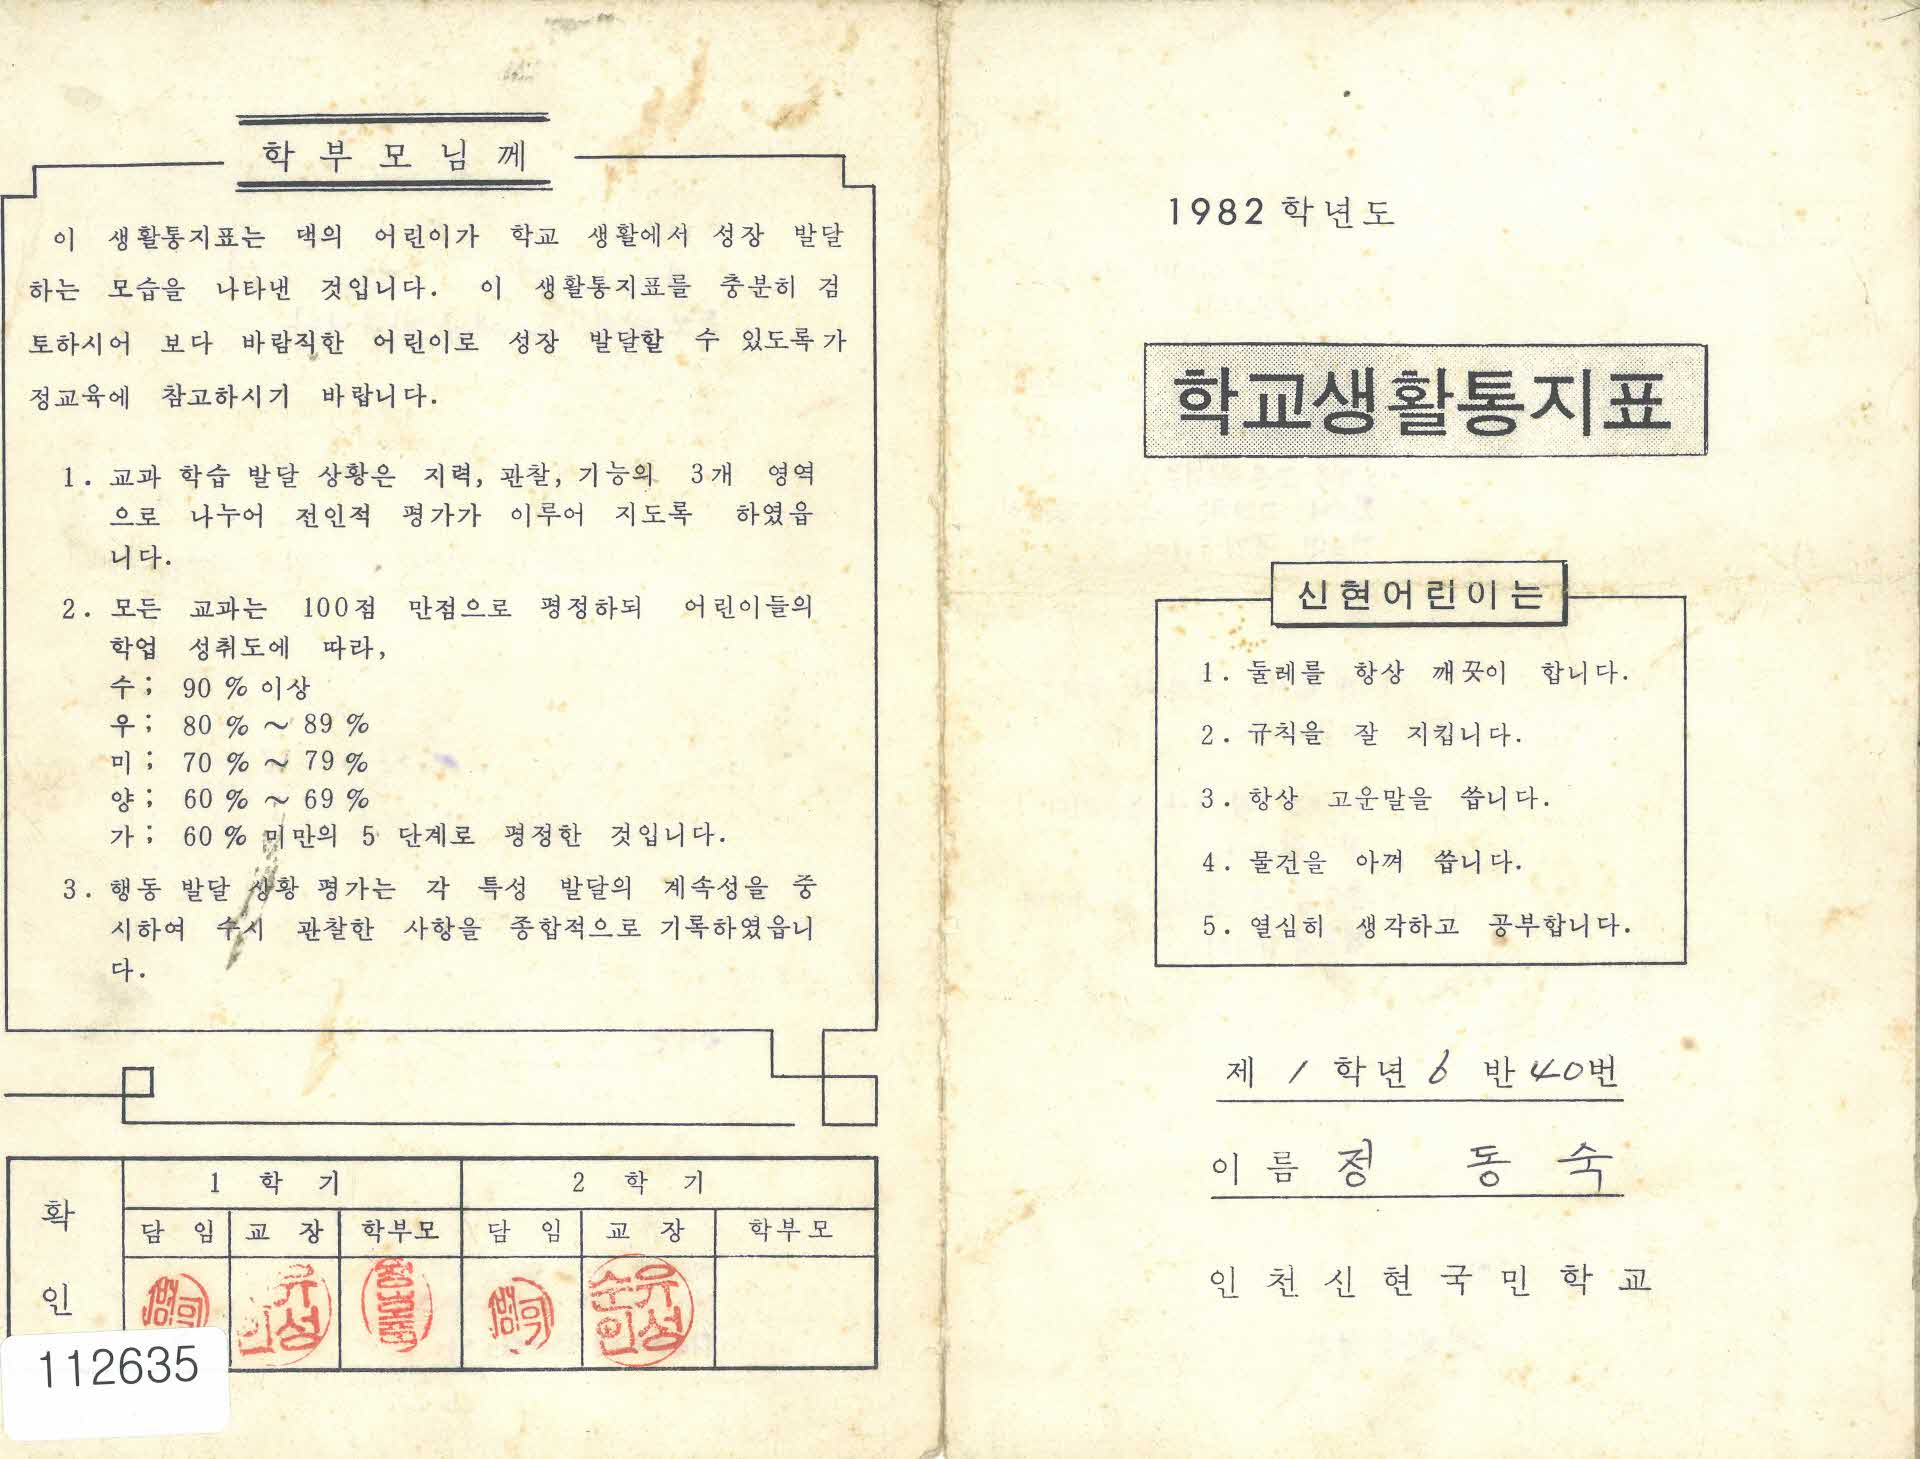 학부모님께
이 생활통지표는 댁의 어린이가 학교 생활에서 성장 발달
하는 모습을 나타낸 것입니다. 이 생활통지표를 충분히 검
토하시어 보다 바람직한 어린이로 성장 발달할 수 있도록 가
정교육에 참고하시기 바랍니다.
1. 교과 학습 발달 상황은 지력, 관찰, 기능의 3개 영역
으로 나누어 전인적 평가가 이루어 지도록 하였읍
니다.
2. 모든 교과는 100점 만점으로 평정하되 어린이들의
학업 성취도에 따라,
수; 90 % 이상
우; 80 % ~ 89 %
미; 70 % ~ 79 %
양; 60 % ~ 69 %
가; 60 % 미만의 5 단계로 평정한 것입니다.
3. 행동 발달 상황 평가는 각 특성 발달의 계속성을 중
시하여 수시 관찰한 사항을 종합적으로 기록하였읍니
다.
확인
1 학 기 2 학 기
담 임 교 장 학부모 담 임 교 장 학부모
유성 순인
112635
1982 학년도
학교생활통지표
신현어린이는
1. 둘레를 항상 깨끗이 합니다.
2. 규칙을 잘 지킵니다.
3. 항상 고운말을 씁니다.
4. 물건을 아껴 씁니다.
5. 열심히 생각하고 공부합니다.
제 1 학년 6 반 40번
이름 정 동 숙
인천신현국민학교